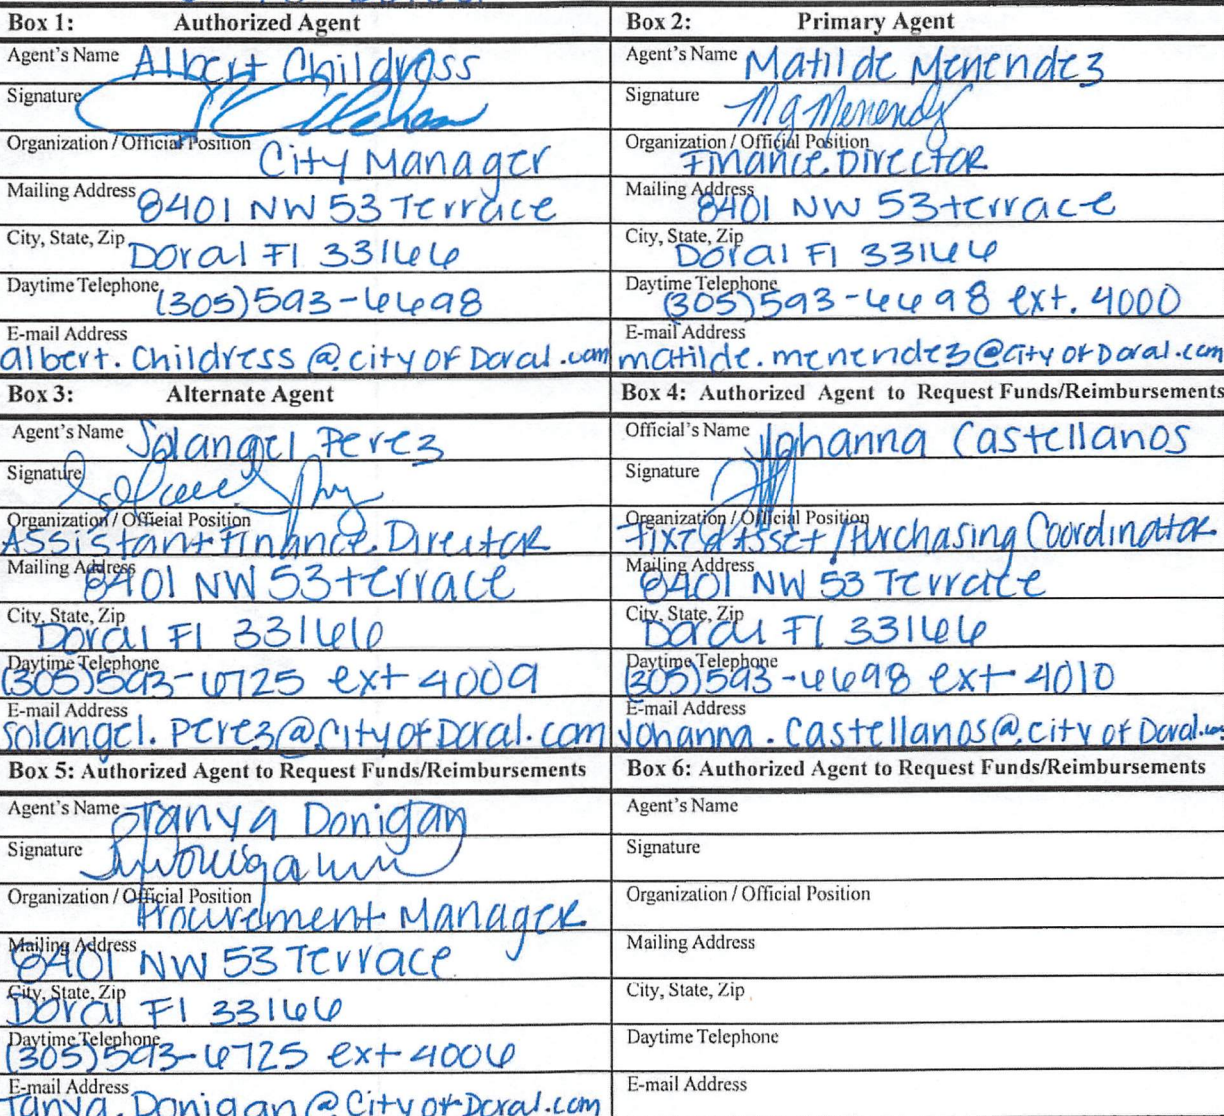 Box 1: Authorized Agent
Agent's Name Albert Childress
Signature
Organization / Official Position City Manager
Mailing Address 8401 NW 53 Terrace
City, State, Zip Doral Fl 33166
Daytime Telephone (305)593-6698
E-mail Address
albert.Childress@cityofDoral.com
Box 2: Primary Agent
Agent's Name Matilde Menendez
Signature MgMenendez
Organization / Official Position Finance Director
Mailing Address 8401 NW 53 terrace
City, State, Zip Doral Fl 33166
Daytime Telephone (305)593-6698 ext. 4000
E-mail Address
matilde.menendez@cityofDoral.com
Box 3: Alternate Agent
Agent's Name Solangel Perez
Signature
Organization / Official Position
Assistant Finance Director
Mailing Address 8401 NW 53 terrace
City, State, Zip Doral Fl 33166
Daytime Telephone
(305)593-6725 ext 4009
E-mail Address
solangel.Perez@CityofDoral.com
Box 4: Authorized Agent to Request Funds/Reimbursements
Official's Name Johanna Castellanos
Signature
Organization / Official Position
Fixed Asset/Purchasing Coordinator
Mailing Address 8401 NW 53 Terrace
City, State, Zip Doral Fl 33166
Daytime Telephone
(305)593-6698 ext 4010
E-mail Address
Johanna.Castellanos@cityofDoral.com
Box 5: Authorized Agent to Request Funds/Reimbursements
Agent's Name Tanya Donigan
Signature
Organization / Official Position Procurement Manager
Mailing Address 8401 NW 53 Terrace
City, State, Zip
Doral Fl 33166
Daytime Telephone
(305)593-6725 ext 4006
E-mail Address
Tanya.Donigan@CityofDoral.com
Box 6: Authorized Agent to Request Funds/Reimbursements
Agent's Name
Signature
Organization / Official Position
Mailing Address
City, State, Zip
Daytime Telephone
E-mail Address